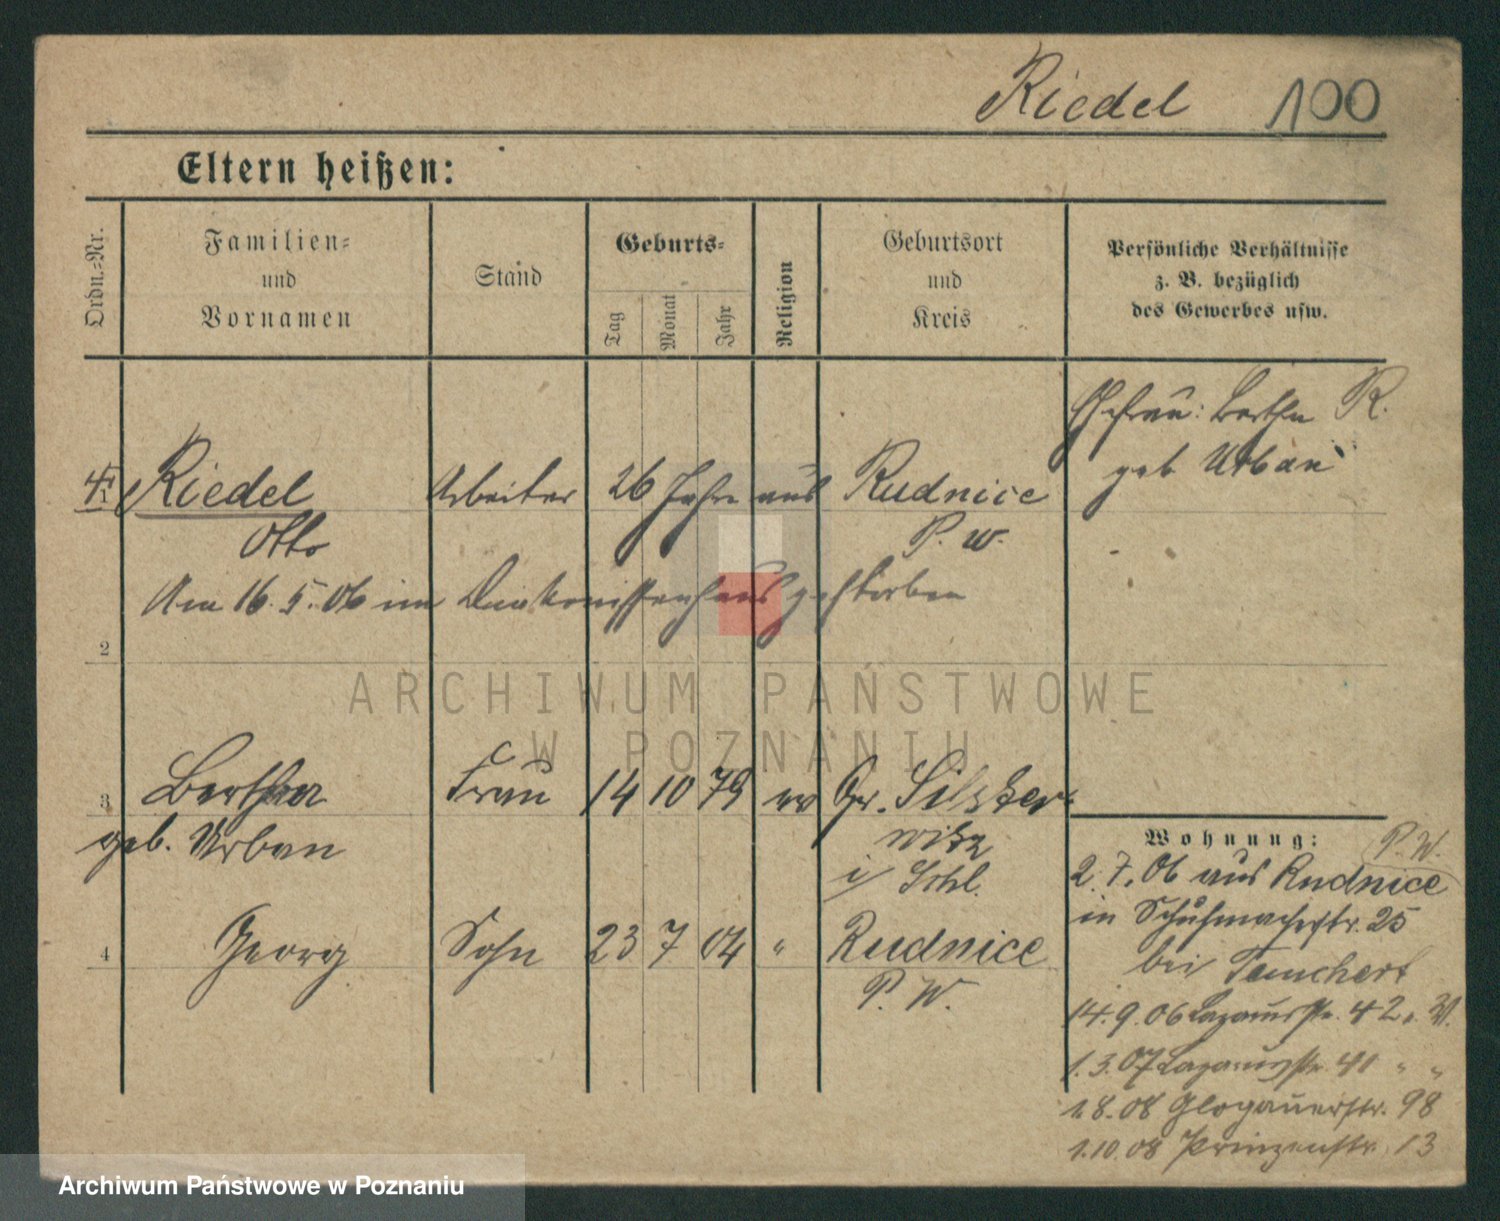 Riedel 100
Eltern heißen:
Ordn.=Nr.
Familien=
und
Vornamen
Stand
Geburts=
Tag
Monat
Jahr
Religion
Geburtsort
und
Kreis
Persönliche Verhältnisse
z. B. bezüglich
des Gewerbes usw.
Ehefrau: Bertha R.
geb Urban
Riedel Arbeiter 26 Jahre aus Rudnice
Otto P. W.
Am 16. 5. 06 im Diakonissenhaus gestorben
2
ARCHIWUM PAŃSTWOWE
W POZNANIU
3 Bertha Frau 14 10 79 ev Gr.
geb. Urban
i/ Schl.
4 Georg Sohn 23 7 04 " Rudnice
P. W.
Wohnung: P. W.
2. 7. 06 aus Rudnice
in Schuhmacherstr. 25
bei
14. 9. 06 Lazarusstr. 42
1. 3. 07 Lazarusstr. 41 " "
1. 8. 08 Glogauerstr. 98
1. 10. 08 Prinzenstr. 13
Archiwum Państwowe w Poznaniu